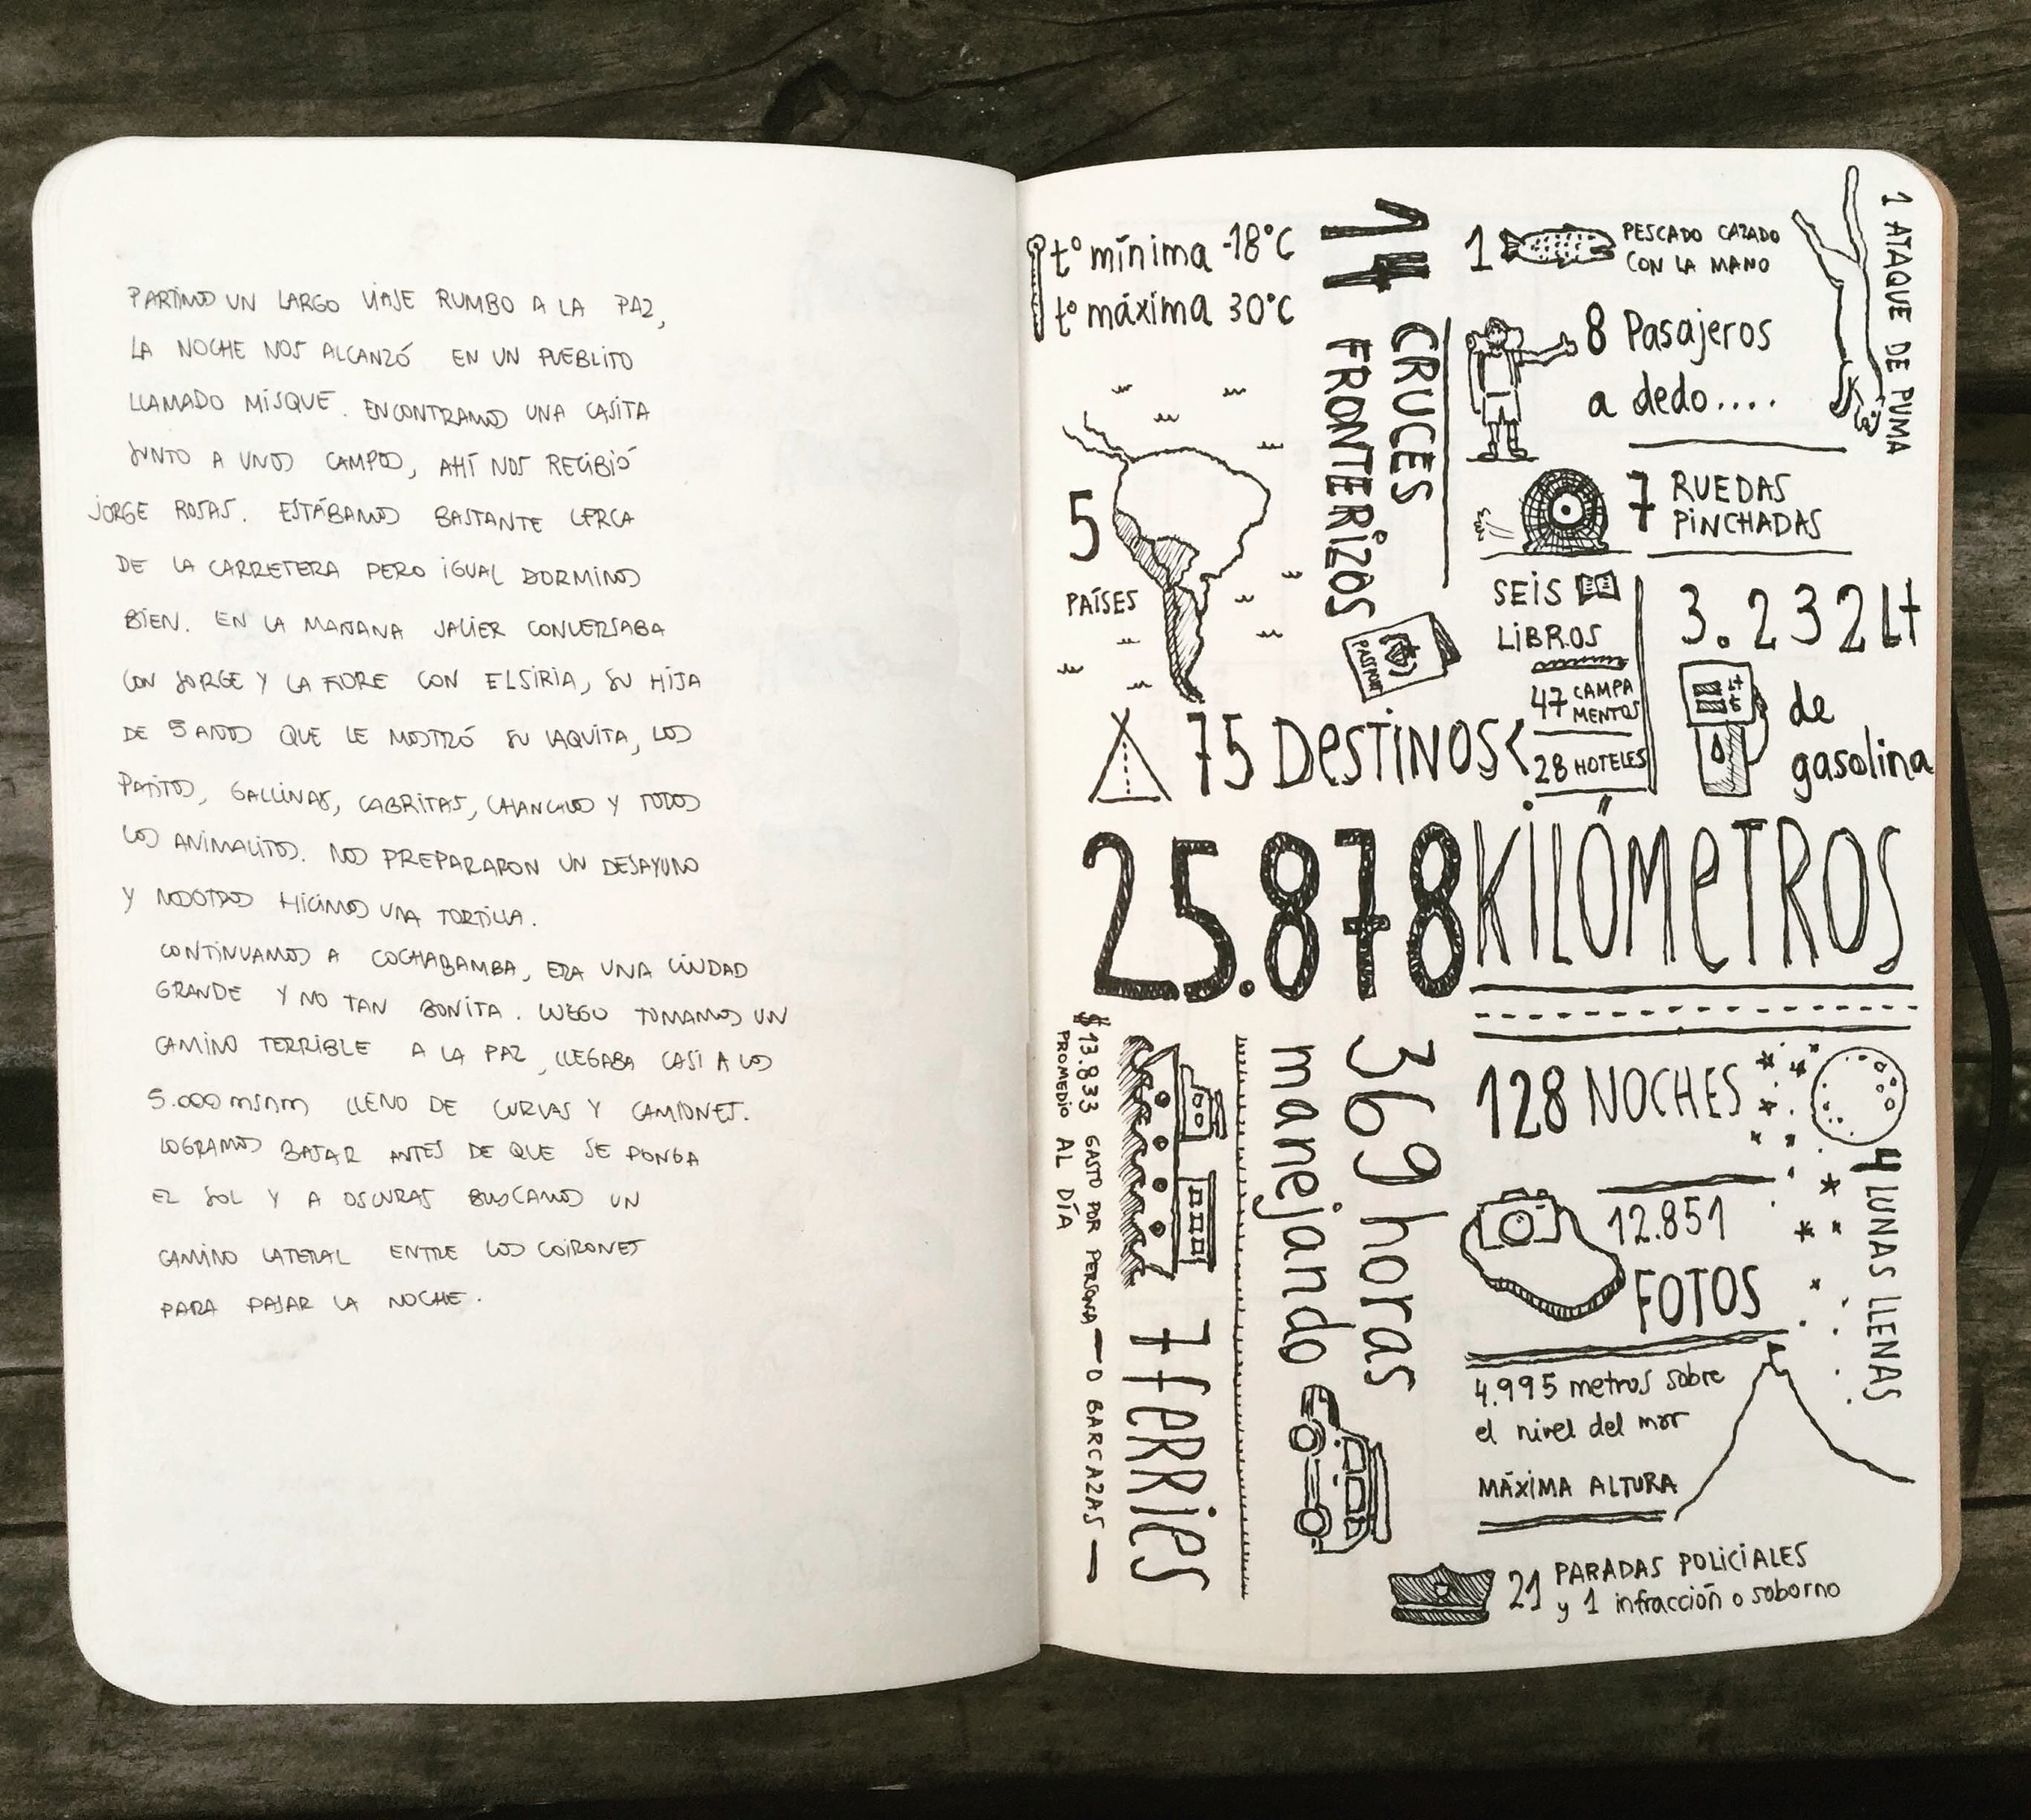 PARTIMOS UN LARGO VIAJE RUMBO A LA PAZ,
LA NOCHE NOS ALCANZÓ EN UN PUEBLITO
LLAMADO MISQUE. ENCONTRAMOS UNA CASITA
JUNTO A UNOS CAMPOS, AHÍ NOS RECIBIÓ
JORGE ROSAS. ESTÁBAMOS BASTANTE CERCA
DE LA CARRETERA PERO IGUAL DORMIMOS
BIEN. EN LA MAÑANA JAVIER CONVERSABA
CON JORGE Y LA FIORE CON ELSIRIA, SU HIJA
DE 5 AÑOS QUE LE MOSTRÓ SU VAQUITA, LOS
PATITOS, GALLINAS, CABRITAS, CHANCHOS Y TODOS
LOS ANIMALITOS. NOS PREPARARON UN DESAYUNO
Y NOSOTROS HICIMOS UNA TORTILLA.
CONTINUAMOS A COCHABAMBA, ERA UNA CIUDAD
GRANDE Y NO TAN BONITA. LUEGO TOMAMOS UN
CAMINO TERRIBLE A LA PAZ, LLEGABA CASI A LOS
5.000 msnm LLENO DE CURVAS Y CAMIONES.
LOGRAMOS BAJAR ANTES DE QUE SE PONGA
EL SOL Y A OSCURAS BUSCAMOS UN
CAMINO LATERAL ENTRE LOS COIRONES
PARA PASAR LA NOCHE.
tº mínima -18°C
tº máxima 30°C
14
CRUCES
FRONTERIZOS
PASSPORT
1 PESCADO CAZADO
CON LA MANO
1 ATAQUE DE PUMA
8 Pasajeros
a dedo....
7 RUEDAS
PINCHADAS
5
PAÍSES
SEIS
LIBROS
3.232 Lt
de
gasolina
75 DESTINOS <
47 CAMPA
MENTOS
28 HOTELES
25.878 KILÓMETROS
$13.833 GASTO POR PERSONA
PROMEDIO AL DÍA
7 FERRIES
— O BARCAZAS —
369 horas
manejando
128 NOCHES
4 LUNAS LLENAS
12.851
FOTOS
4.995 metros sobre
el nivel del mar
MÁXIMA ALTURA
21 PARADAS POLICIALES
y 1 infracción o soborno